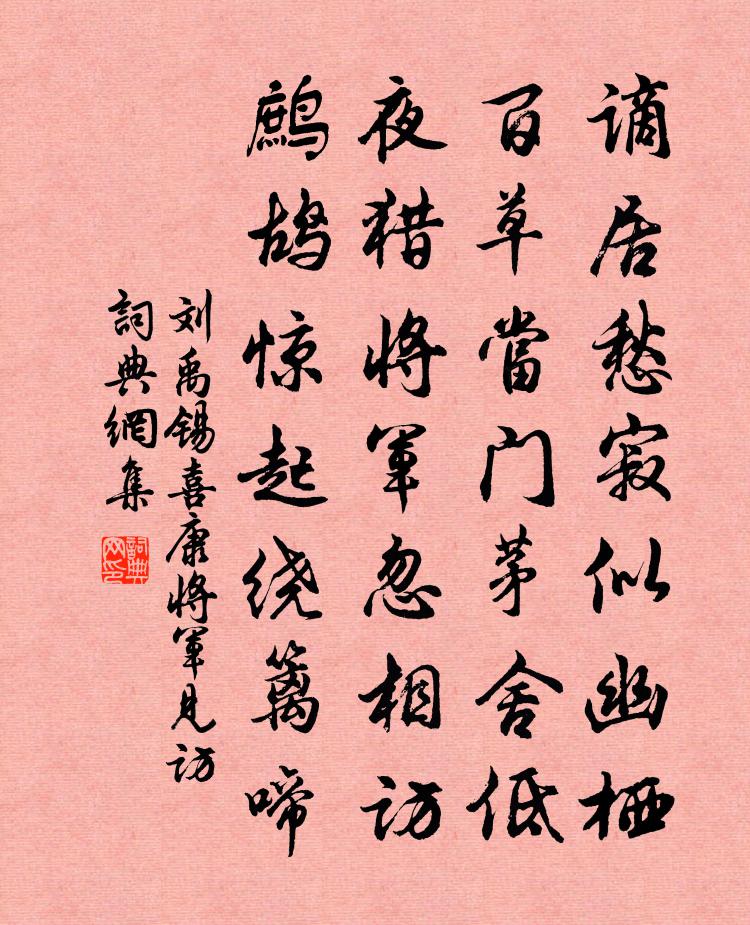 谪居愁寂似幽栖
百草當门茅舍低
夜猎将军忽相访
鹧鸪惊起绕篱啼
刘禹锡喜康将军見访
詞典網集
詞典
网印